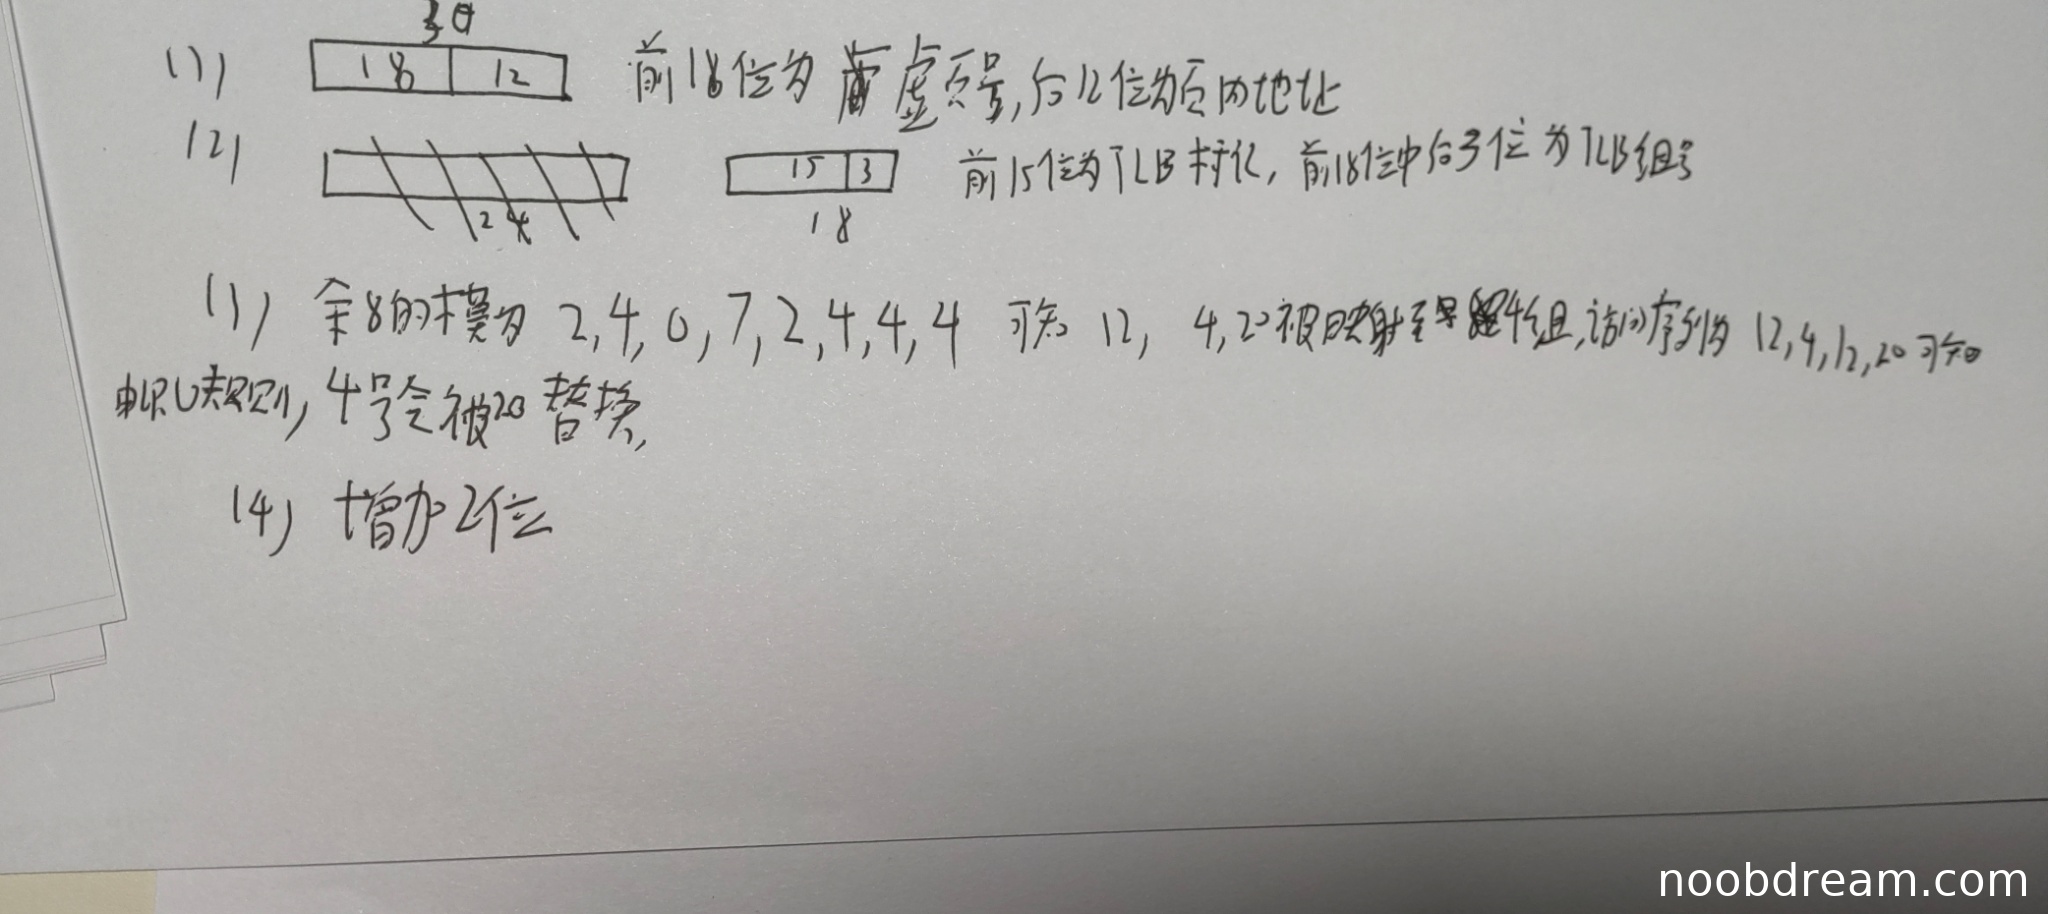 30
(1) 18 12 前18位为虚页号,后12位为页内地址
(2) 24 15 3 前15位为TLB标记,前18位中后3位为TLB组号
18
(3) 余8的模为 2,4,0,7,2,4,4,4 可知 12, 4,20被映射至4组,访问序列为 12,4,12,20可知
由LRU规则,4号会被20替换,
(4) 增加2位
noobdream.com